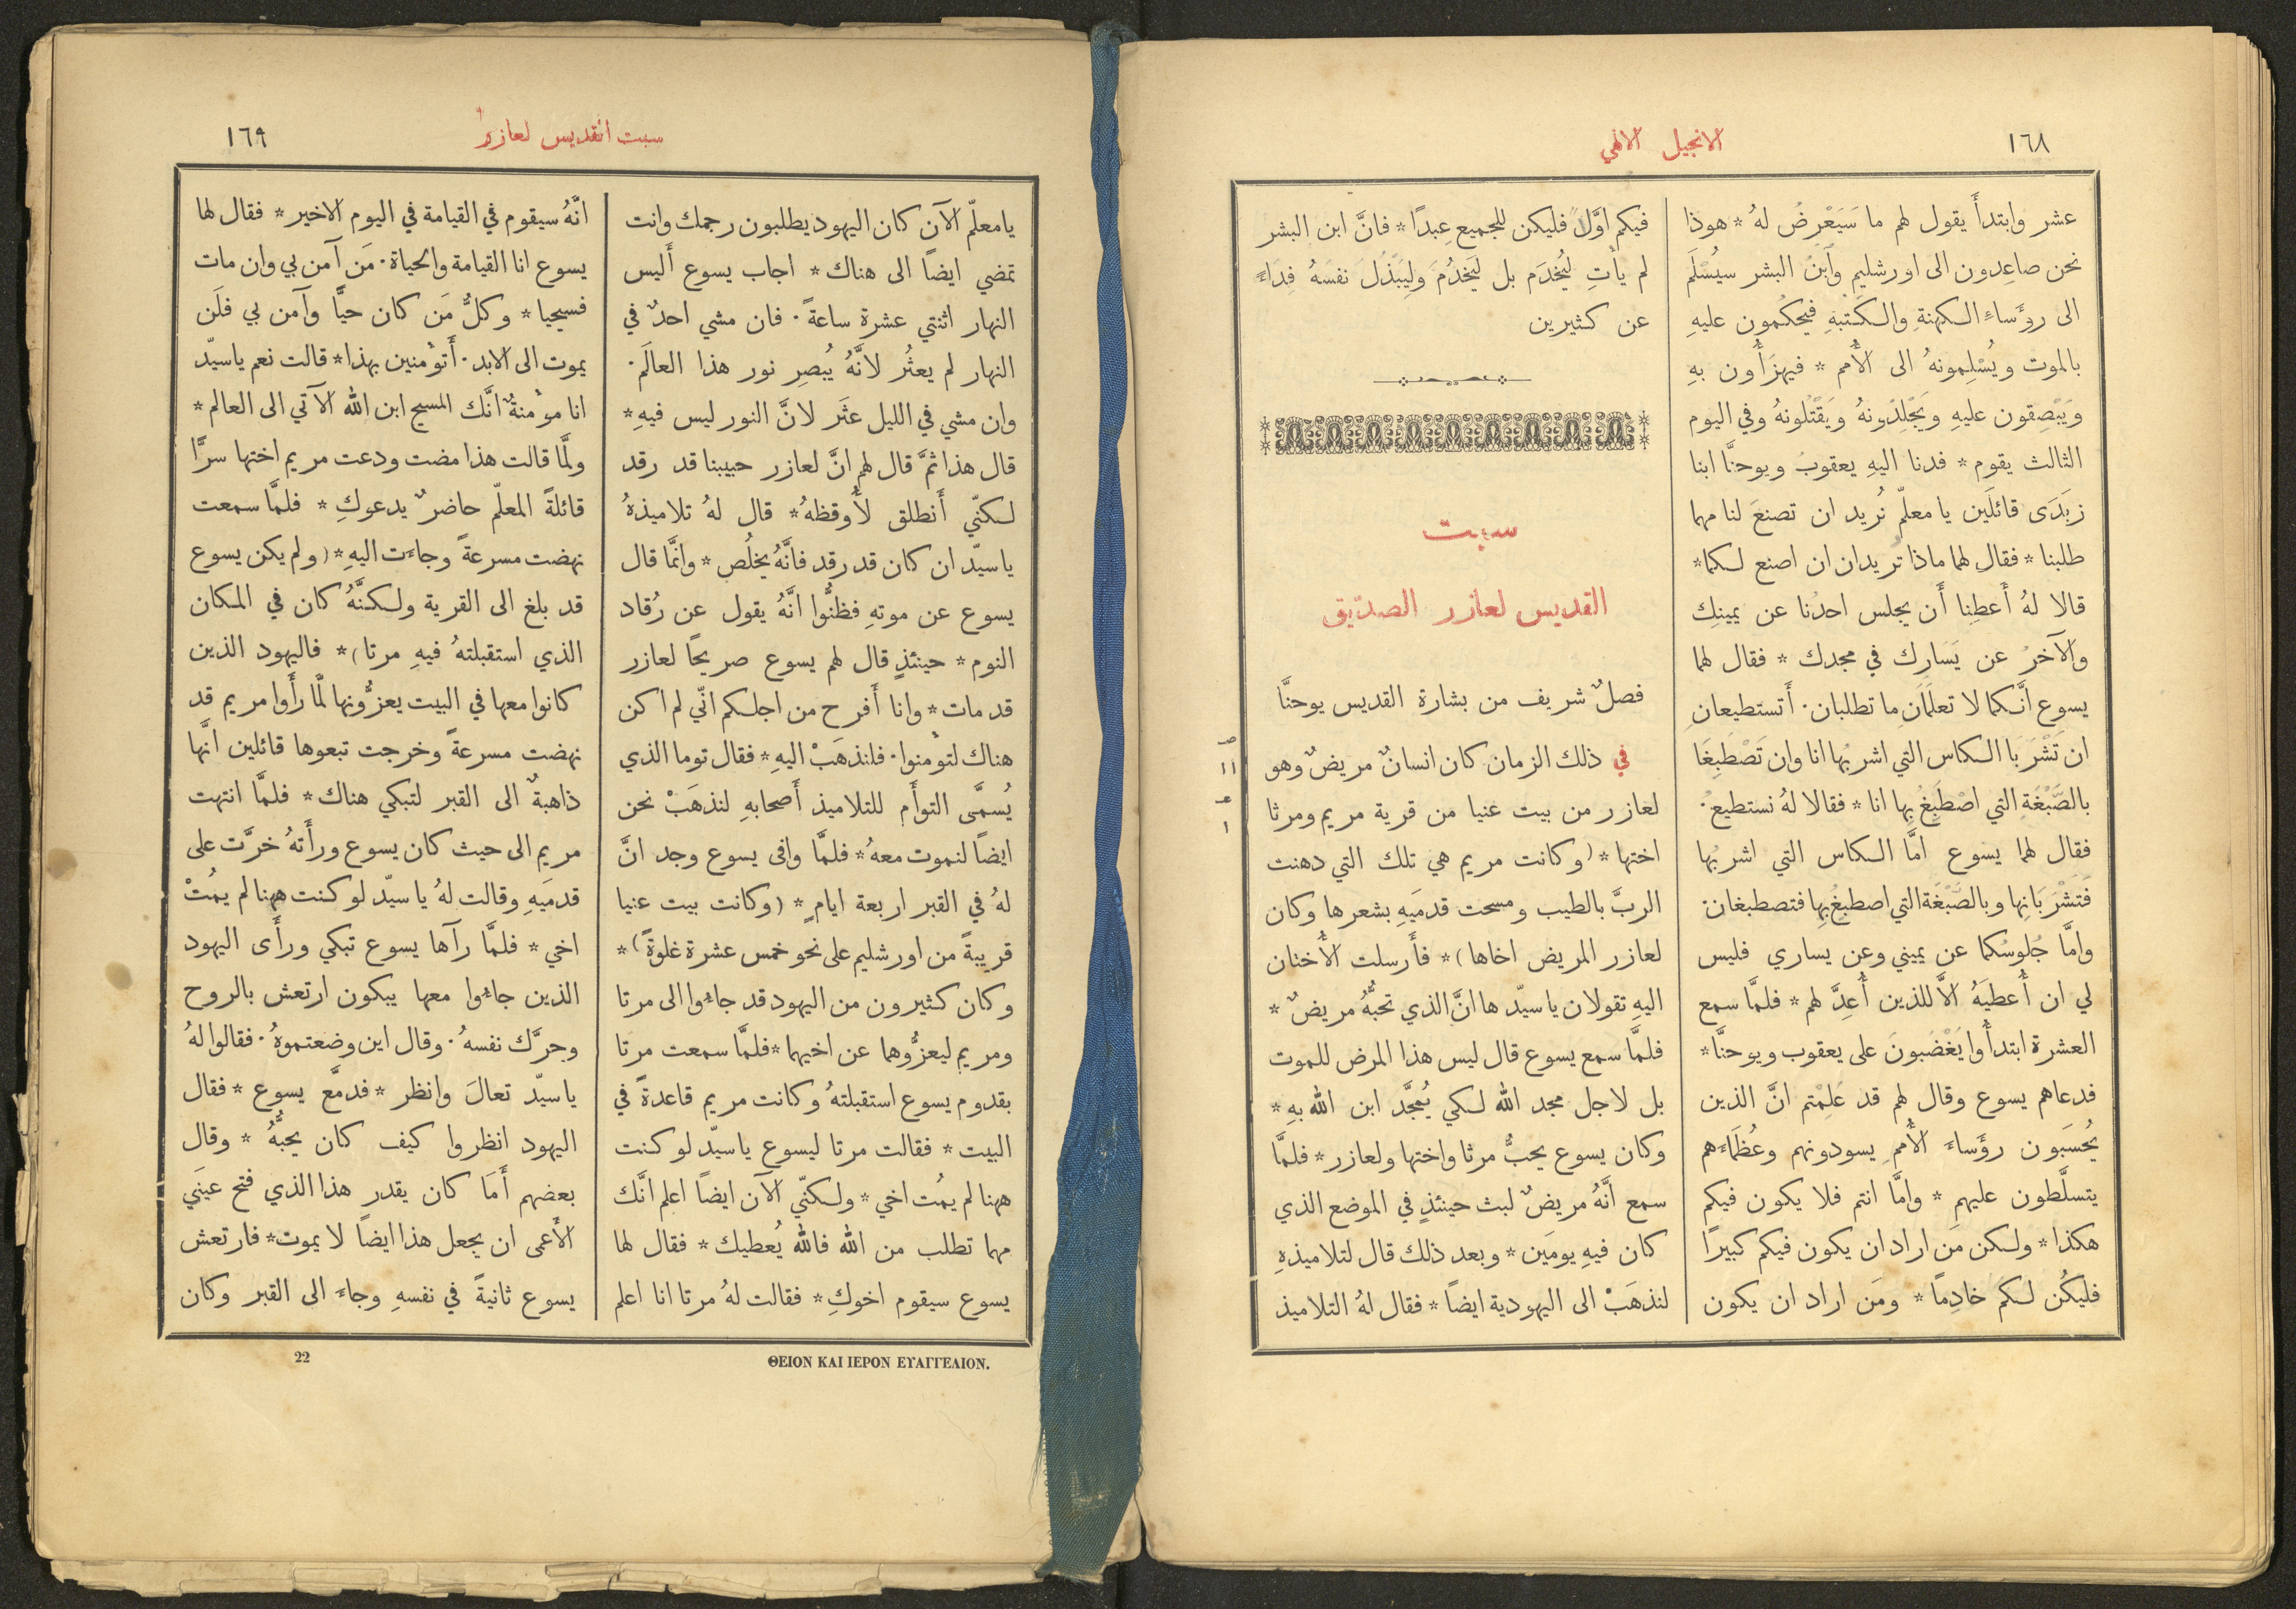 ١٦٨
الانجيل الالهي
عشر وابتدأَ يقول لهم ما سَيَعْرِضُ لهُ * هوذا
نحن صاعِدون الى اورشليم وٱبنُ البشر سيُسْلَم
الى رؤَساءِ الكهنةِ والكَتَبةِ فيحكُمون عليهِ
بالموت ويُسْلِمونهُ الى الأُمم * فيهزَأُون بهِ
وَيَبْصِقون عليهِ ويَجْلِدُونهُ ويَقْتُلونهُ وفي اليوم
الثالث يقوم * فدنا اليهِ يعقوبُ ويوحنَّا ابنا
زَبَدَى قائلَين يا معلّم نُريد ان تصنعَ لنا مهما
طلبنا * فقال لهما ماذا تُريدان ان اصنع لكما *
قالا لهُ أَعطِنا أَن يجلس احدُنا عن يمينِك
والآخرُ عن يَسَارِك في مجدك * فقال لهما
يسوع انَّكما لا تعلَمَانِ ما تطلبان . أَتستطيعانِ
ان تَشْرَبَا الكاس التي اشربُها انا وان تَصْطَبِغَا
بالصَّبْغَةِ التي اصْطَبِغُ بها انا * فقالا لهُ نستطيعُ .
فقال لهما يسوع امَّا الكاس التي اشربُها
فَتَشْرَبَانِها وبالصَّبْغَة التي اصطبِغُ بها فتصطبغان *
وامَّا جُلوسُكما عن يميني وعن يساري فليس
لي ان أُعطيَهُ الاَّ للذين أُعِدَّ لهم * فلمَّا سمع
العشرة ابتدأُوا يَغْضَبونَ على يعقوب ويوحنَّا *
فدعاهم يسوع وقال لهم قد عَلِمْتم انَّ الذين
يُحْسَبون رؤَساءَ الأُممِ يسودونهم وعُظَماءَهم
يتسلَّطون عليهم * وامَّا انتم فلا يكون فيكم
هكذا * ولكن مَن اراد ان يكون فيكم كبيرًا
فليكُن لكم خادِمًا * ومَن اراد ان يكون
فيكم اوَّلًا فليكن للجميع عبدًا * فانَّ ابن البشر
لم يأتِ ليُخدَم بل ليَخدُمَ وليَبذُلَ نفسَهُ فِدَاءً
عن كثيرين
سبت
القديس لعازر الصدّيق
فصلٌ شريف من بشارة القديس يوحنَّا
صـ
١١
عـ
١
في ذلك الزمان كان انسانٌ مريضٌ وهو
لعازر من بيت عنيا من قرية مريم ومرثا
اختها * (وكانت مريم هي تلك التي دهنت
الربَّ بالطيب ومسحت قدمَيهِ بشعرها وكان
لعازر المريض اخاها) * فأَرسلت الأُختان
اليهِ تقولان يا سيّد ها انَّ الذي تحبُّهُ مريضٌ *
فلمَّا سمع يسوع قال ليس هذا المرض للموت
بل لاجل مجد الله لكي يُمجَّد ابن الله بهِ *
وكان يسوع يحبُّ مرثا واختها ولعازر * فلمَّا
سمع انَّهُ مريضٌ لبث حينئذٍ في الموضع الذي
كان فيهِ يومَين * وبعد ذلك قال لتلاميذهِ
لنذهَبْ الى اليهودية ايضاً * فقال لهُ التلاميذ
سبت القديس لعازر
١٦٩
يا معلّم الآن كان اليهود يطلبون رجمك وانت
تمضي ايضاً الى هناك * اجاب يسوع أَليس
النهار اثنتي عشرة ساعةً . فان مشي احدٌ في
النهار لم يعثُر لانَّهُ يُبصِر نور هذا العالَم .
وان مشي في الليل عثَر لانَّ النور ليس فيهِ *
قال هذا ثمَّ قال لهم انَّ لعازر حبيبنا قد رقد
لكنّي أَنطلق لأُوقظهُ * قال لهُ تلاميذهُ
يا سيّد ان كان قد رقد فانَّهُ يخلُص * وانَّما قال
يسوع عن موتهِ فظنُّوا انَّهُ يقول عن رُقاد
النوم * حينئذٍ قال لهم يسوع صريحًا لعازر
قد مات * وانا أَفرح من اجلكم انّي لم اكن
هناك لتؤمنوا . فلنذهَبْ اليهِ * فقال توما الذي
يُسمَّى التوأَم للتلاميذ أَصحابهِ لنذهَبْ نحن
ايضاً لنموت معهُ * فلمَّا وافى يسوع وجد انَّ
لهُ في القبر اربعة ايامٍ * (وكانت بيت عنيا
قريبةً من اورشليم على نحو خمس عشرة غلوةً) *
وكان كثيرون من اليهود قد جاءُوا الى مرتا
ومريم ليعزُّوهما عن اخيهما * فلمَّا سمعت مرتا
بقدوم يسوع استقبلتهُ وكانت مريم قاعدةً في
البيت * فقالت مرتا ليسوع يا سيّد لو كنت
ههنا لم يمُت اخي * ولكنّي الآن ايضاً اعلم انَّك
مهما تطلب من الله فالله يُعطيك * فقال لها
يسوع سيقوم اخوكِ * فقالت لهُ مرتا انا اعلم
انَّهُ سيقوم في القيامة في اليوم الاخير * فقال لها
يسوع انا القيامة والحياة . مَن آمن بي وان مات
فسيحيا * وكلُّ مَن كان حيًّا وآمن بي فلَن
يموت الى الابد . أَتؤمنين بهذا * قالت نعم يا سيّد
انا مؤمنةٌ انَّك المسيح ابن الله الآتي الى العالم *
ولمَّا قالت هذا مضت ودعت مريم اختها سرًّا
قائلةً المعلّم حاضرٌ يدعوكِ * فلمَّا سمعت
نهضت مسرعةً وجاءَت اليهِ * (ولم يكن يسوع
قد بلغ الى القرية ولكنَّهُ كان في المكان
الذي استقبلتهُ فيهِ مرتا) * فاليهود الذين
كانوا معها في البيت يعزُّونها لمَّا رأَوا مريم قد
نهضت مسرعةً وخرجت تبعوها قائلين انَّها
ذاهبةٌ الى القبر لتبكي هناك * فلمَّا انتهت
مريم الى حيث كان يسوع ورأَتهُ خرَّت على
قدمَيهِ وقالت لهُ يا سيّد لو كنت ههنا لم يمُتْ
اخي * فلمَّا رآها يسوع تبكي ورأَى اليهود
الذين جاءُوا معها يبكون ارتعش بالروح
وحرَّك نفسهُ . وقال اين وضعتموهُ . فقالوا لهُ
يا سيّد تعالَ وانظر * فدمَّع يسوع * فقال
اليهود انظروا كيف كان يحبُّهُ * وقال
بعضهم أَمَا كان يقدر هذا الذي فتح عينَي
الأَعمى ان يجعل هذا ايضاً لا يموت * فارتعش
يسوع ثانيةً في نفسهِ وجاءَ الى القبر وكان
ΘΕΙΟΝ ΚΑΙ ΙΕΡΟΝ ΕΥΑΓΓΕΛΙΟΝ.
22